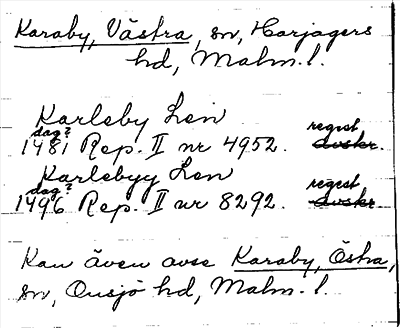 Karaby, Västra, sn, Harjagers
hd, Malm.l.
Karleby Len
dag? regest
1481 Rep. II nr 4952. avskr.
Karlebyy Len
dag? regest
1496 Rep. II nr 8292. avskr.
Kan även avse Karaby, Östra,
sn, Onsjö hd, Malm.l.